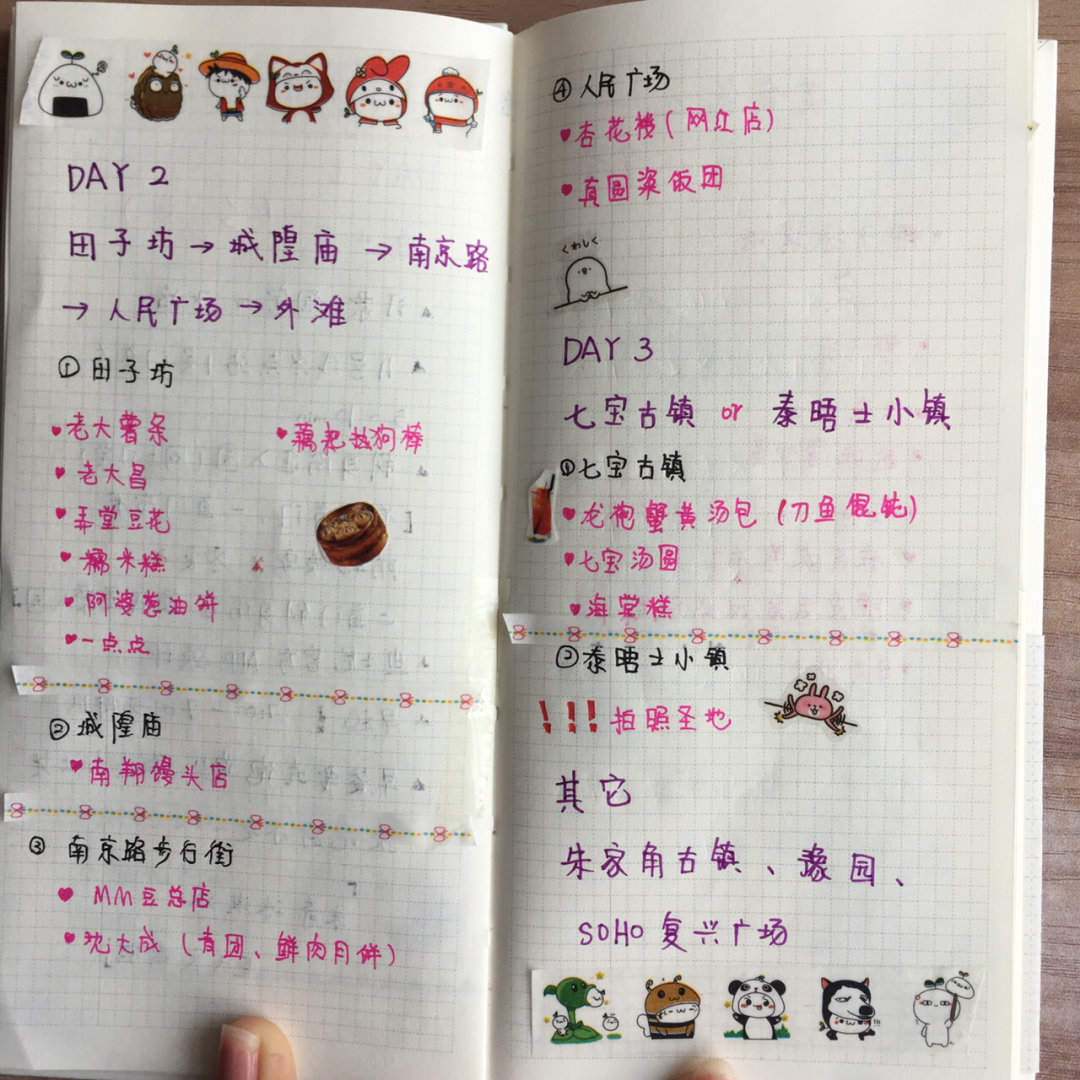 DAY 2
田子坊→城隍庙→南京路
→人民广场→外滩
①田子坊
老大薯条
藕粑热狗棒
老大昌
弄堂豆花
糯米糕
阿婆葱油饼
一点点
②城隍庙
南翔馒头店
③南京路步行街
MM豆总店
沈大成(青团、鲜肉月饼)
④人民广场
杏花楼(网红店)
真圆粢饭团
くわしく
DAY 3
七宝古镇 or 泰晤士小镇
①七宝古镇
龙袍蟹黄汤包(刀鱼馄饨)
七宝汤圆
海棠糕
②泰晤士小镇
!!!拍照圣地
其它
朱家角古镇、豫园、
SOHO复兴广场